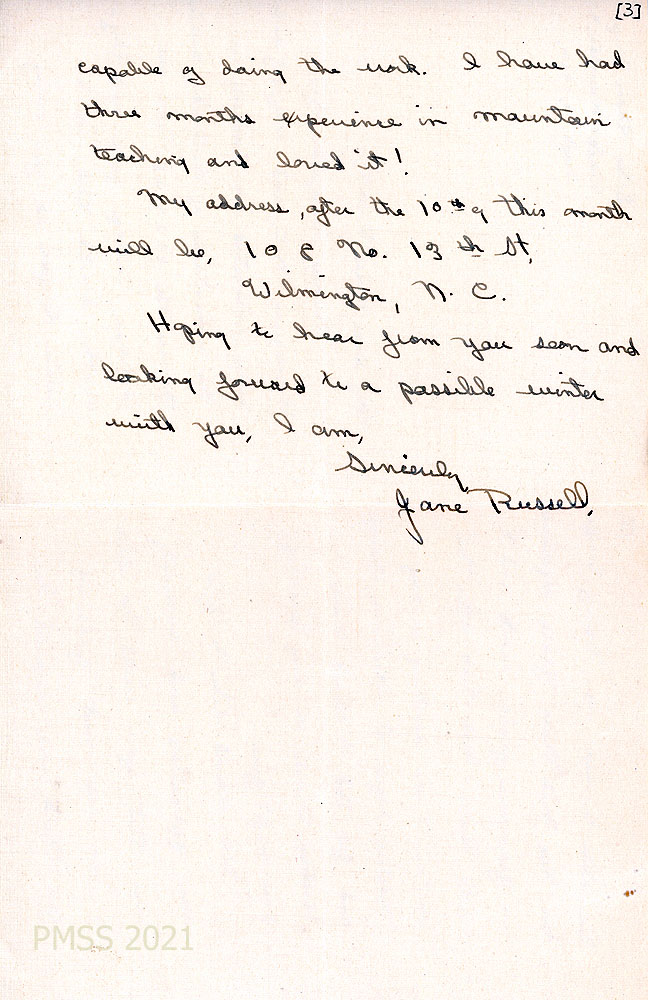 [3]
capable of doing the work. I have had
three months experience in mountain
teaching and loved it!
My address, after the 10th of this month
will be, 108 No. 13th St,
Wilmington, N. C.
Hoping to hear from you soon and
looking forward to a possible winter
with you, I am,
Sincerely,
Jane Russell.
PMSS 2021